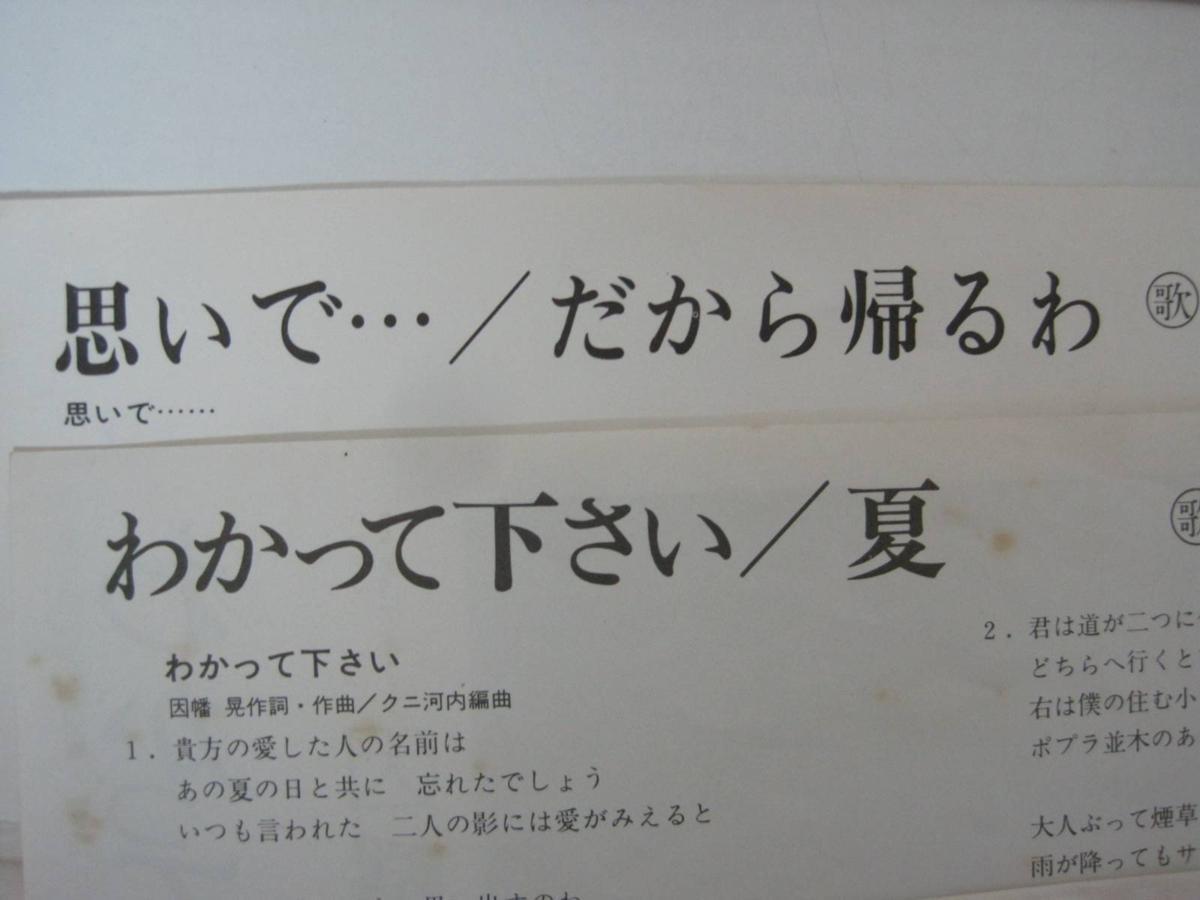 思いで…／だから帰るわ ㊙歌
思いで……
わかって下さい／夏 歌
わかって下さい
因幡 晃作詞・作曲／クニ河内編曲
1．貴方の愛した人の名前は
あの夏の日と共に 忘れたでしょう
いつも言われた 二人の影には愛がみえると
2．君は道が二つに
どちらへ行くと
右は僕の住む小
ポプラ並木のあ
大人ぶって煙草
雨が降ってもサ